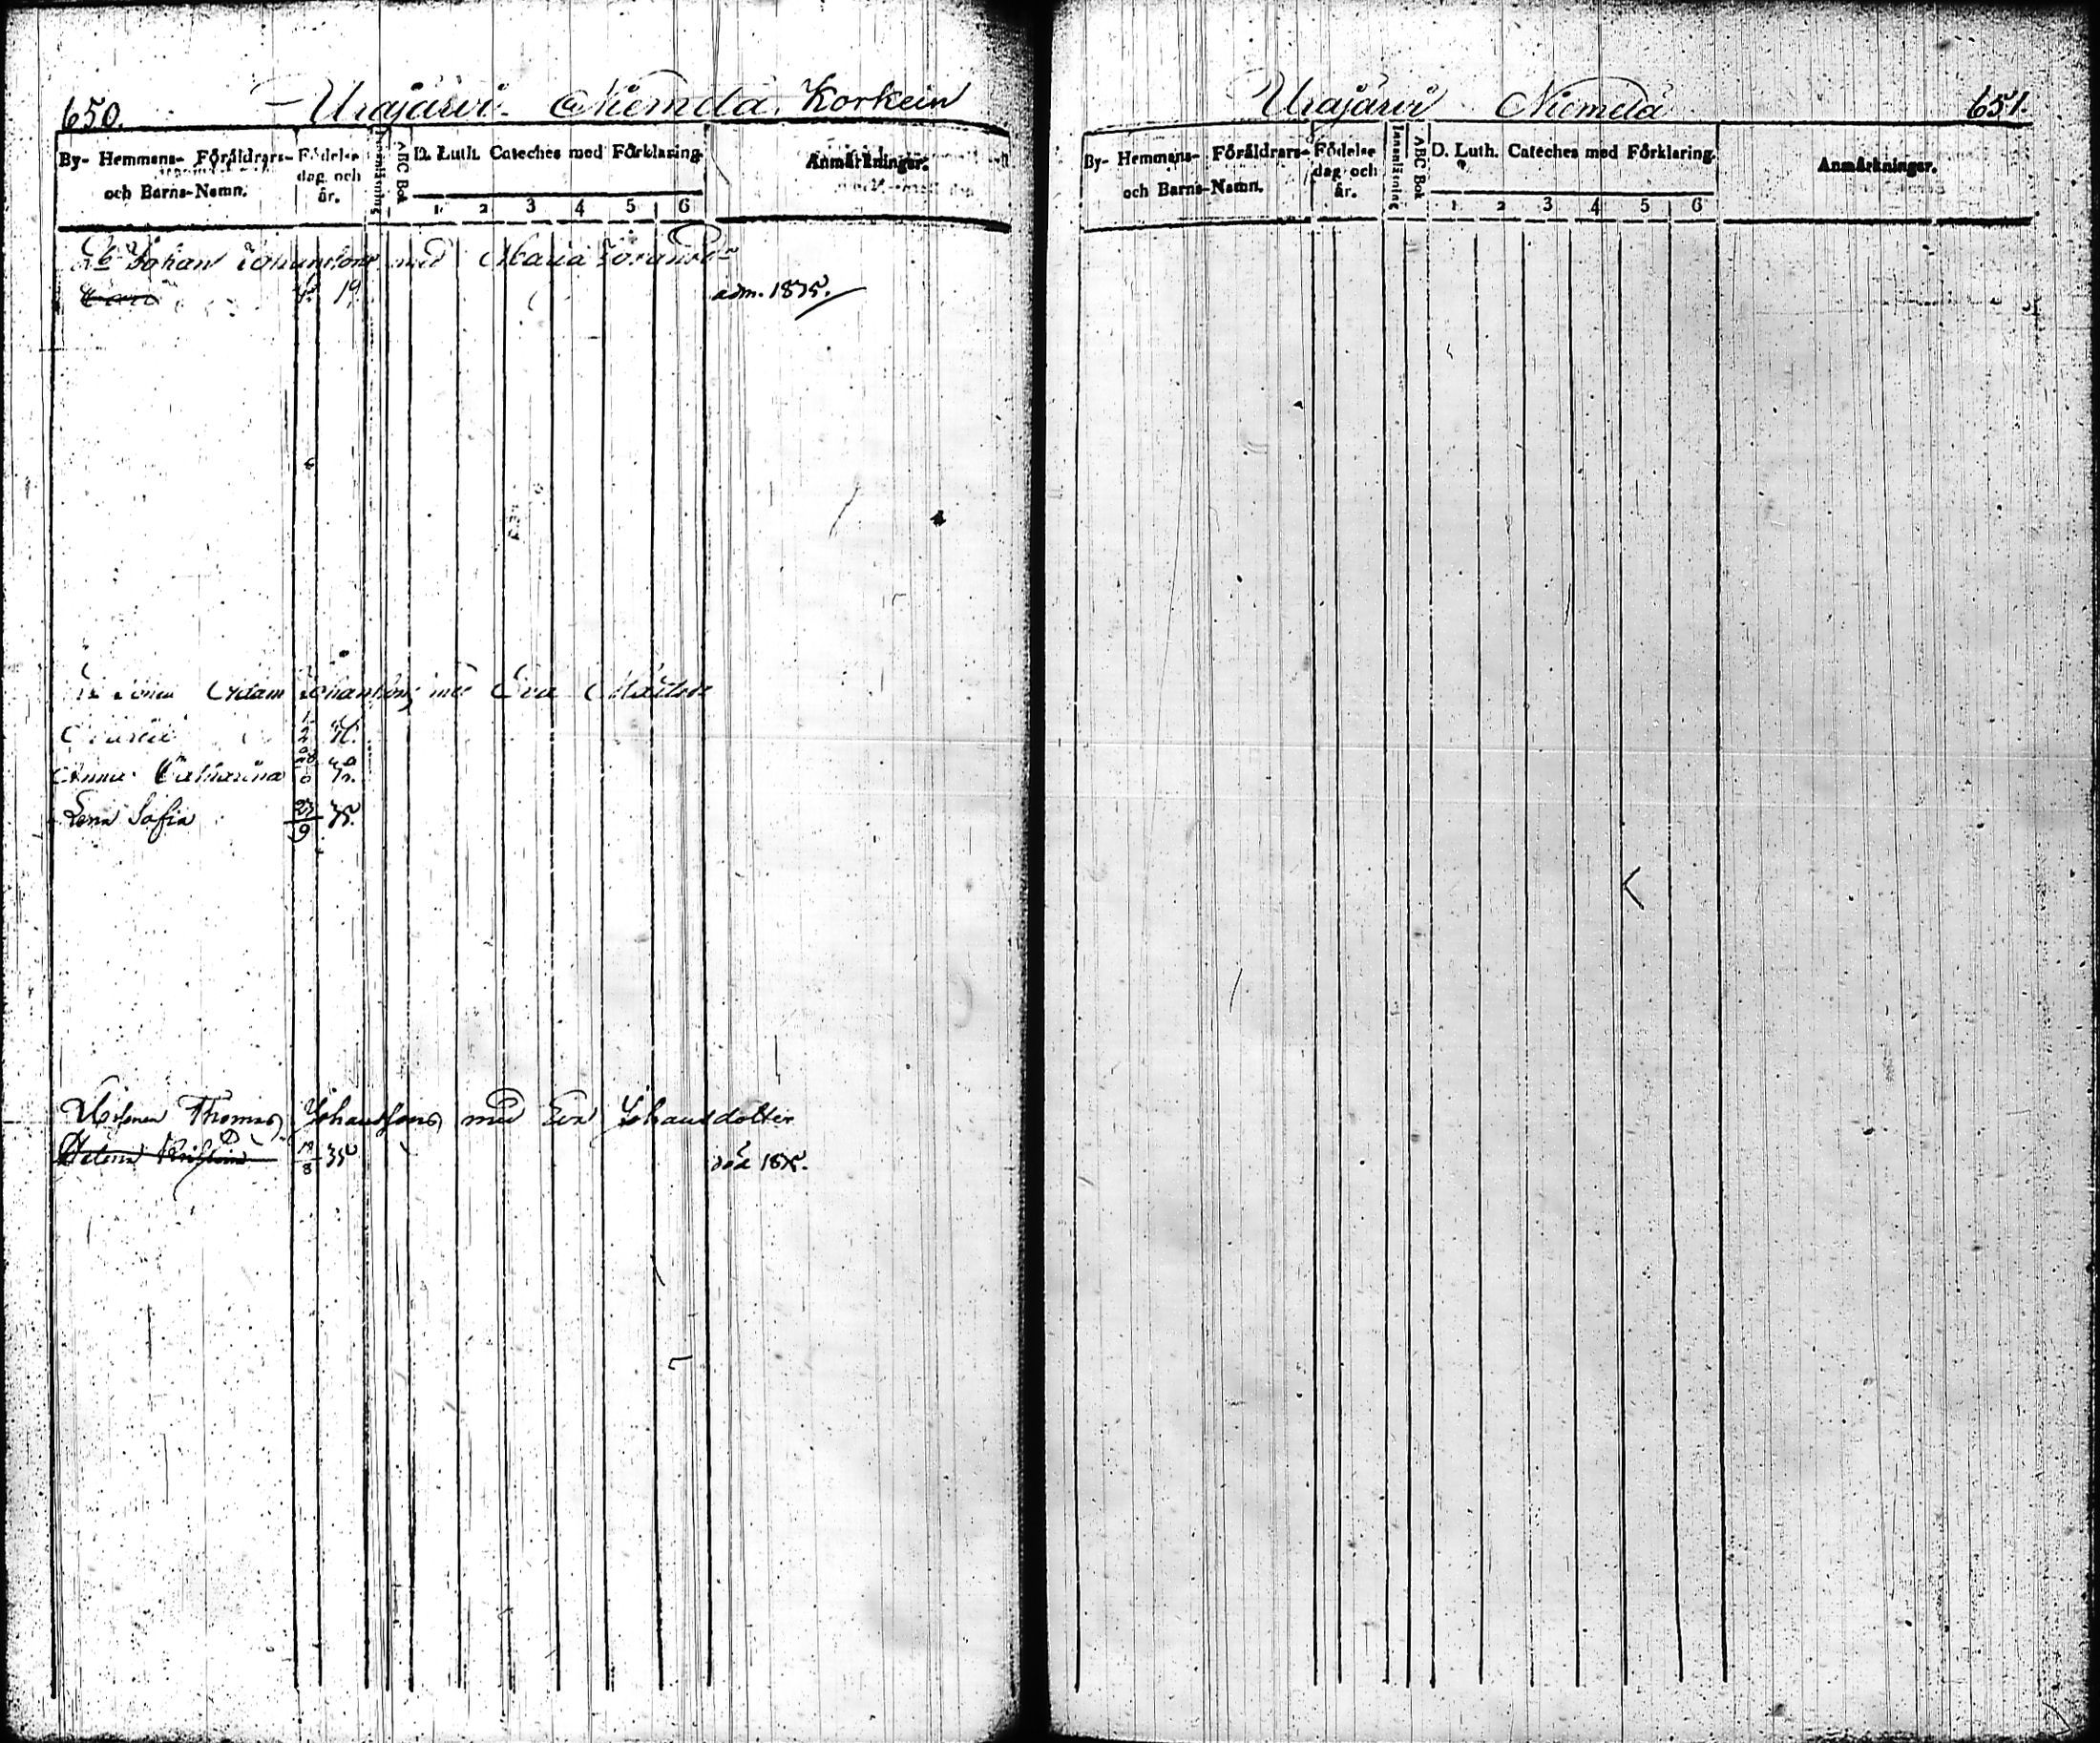 650. Urajärvi. Niemelä. Korkein
By- Hemmans- Föräldrars- och Barns-Namn.
Födelse dag och år.
Innanläsning
ABC Bok
D. Luth. Cateches med Förklaring.
1 2 3 4 5 6
Anmärkningar.
Johan Johansson med Maria
19. adm. 1835.
Adam Johansson med Eva Mattsdr
Maria
Anna Catharina
Lena Sofia 23/9 35.
Thomas Johansson med Eva Johansdotter
Helena Kristina 19/8 35 död 1835.
Urajärvi Niemelä 651.
By- Hemmans- Föräldrars- och Barns-Namn.
Födelse dag och år.
Innanläsning
ABC Bok
D. Luth. Cateches med Förklaring.
1 2 3 4 5 6
Anmärkningar.